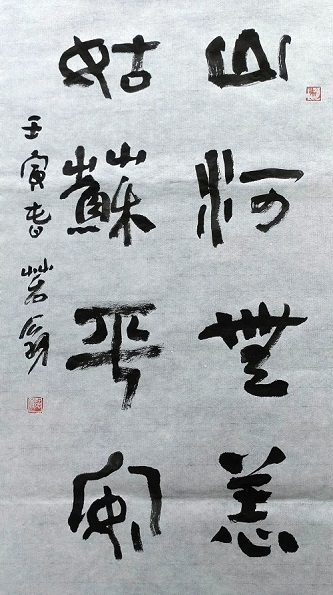 山河無恙
姑蘇平安
壬寅春